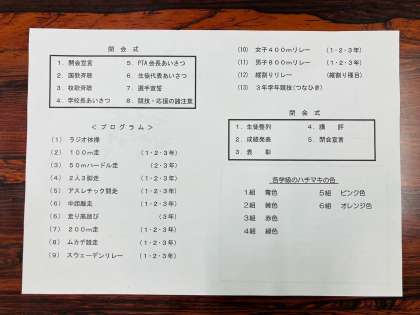 開 会 式
1. 開会宣言 5. PTA会長あいさつ
2. 国歌斉唱 6. 生徒代表あいさつ
3. 校歌斉唱 7. 選手宣誓
4. 学校長あいさつ 8. 競技・応援の諸注意
＜プログラム＞
(1) ラジオ体操
(2) 100m走 (1・2・3年)
(3) 50mハードル走 (2・3年)
(4) 2人3脚走 (1・2・3年)
(5) アスレチック競走 (1・2・3年)
(6) 中距離走 (1・2・3年)
(6) 走り高跳び (3年)
(7) 200m走 (1・2・3年)
(8) ムカデ競走 (1・2・3年)
(9) スウェーデンリレー (1・2・3年)
(10) 女子400mリレー (1・2・3年)
(11) 男子800mリレー (1・2・3年)
(12) 縦割りリレー (縦割り種目)
(13) 3年学年競技(つなひき)
閉 会 式
1. 生徒整列 4. 講 評
2. 成績発表 5. 閉会宣言
3. 表 彰
各学級のハチマキの色
1組 青色 5組 ピンク色
2組 6組 オレンジ色
3組 赤色
4組 緑色